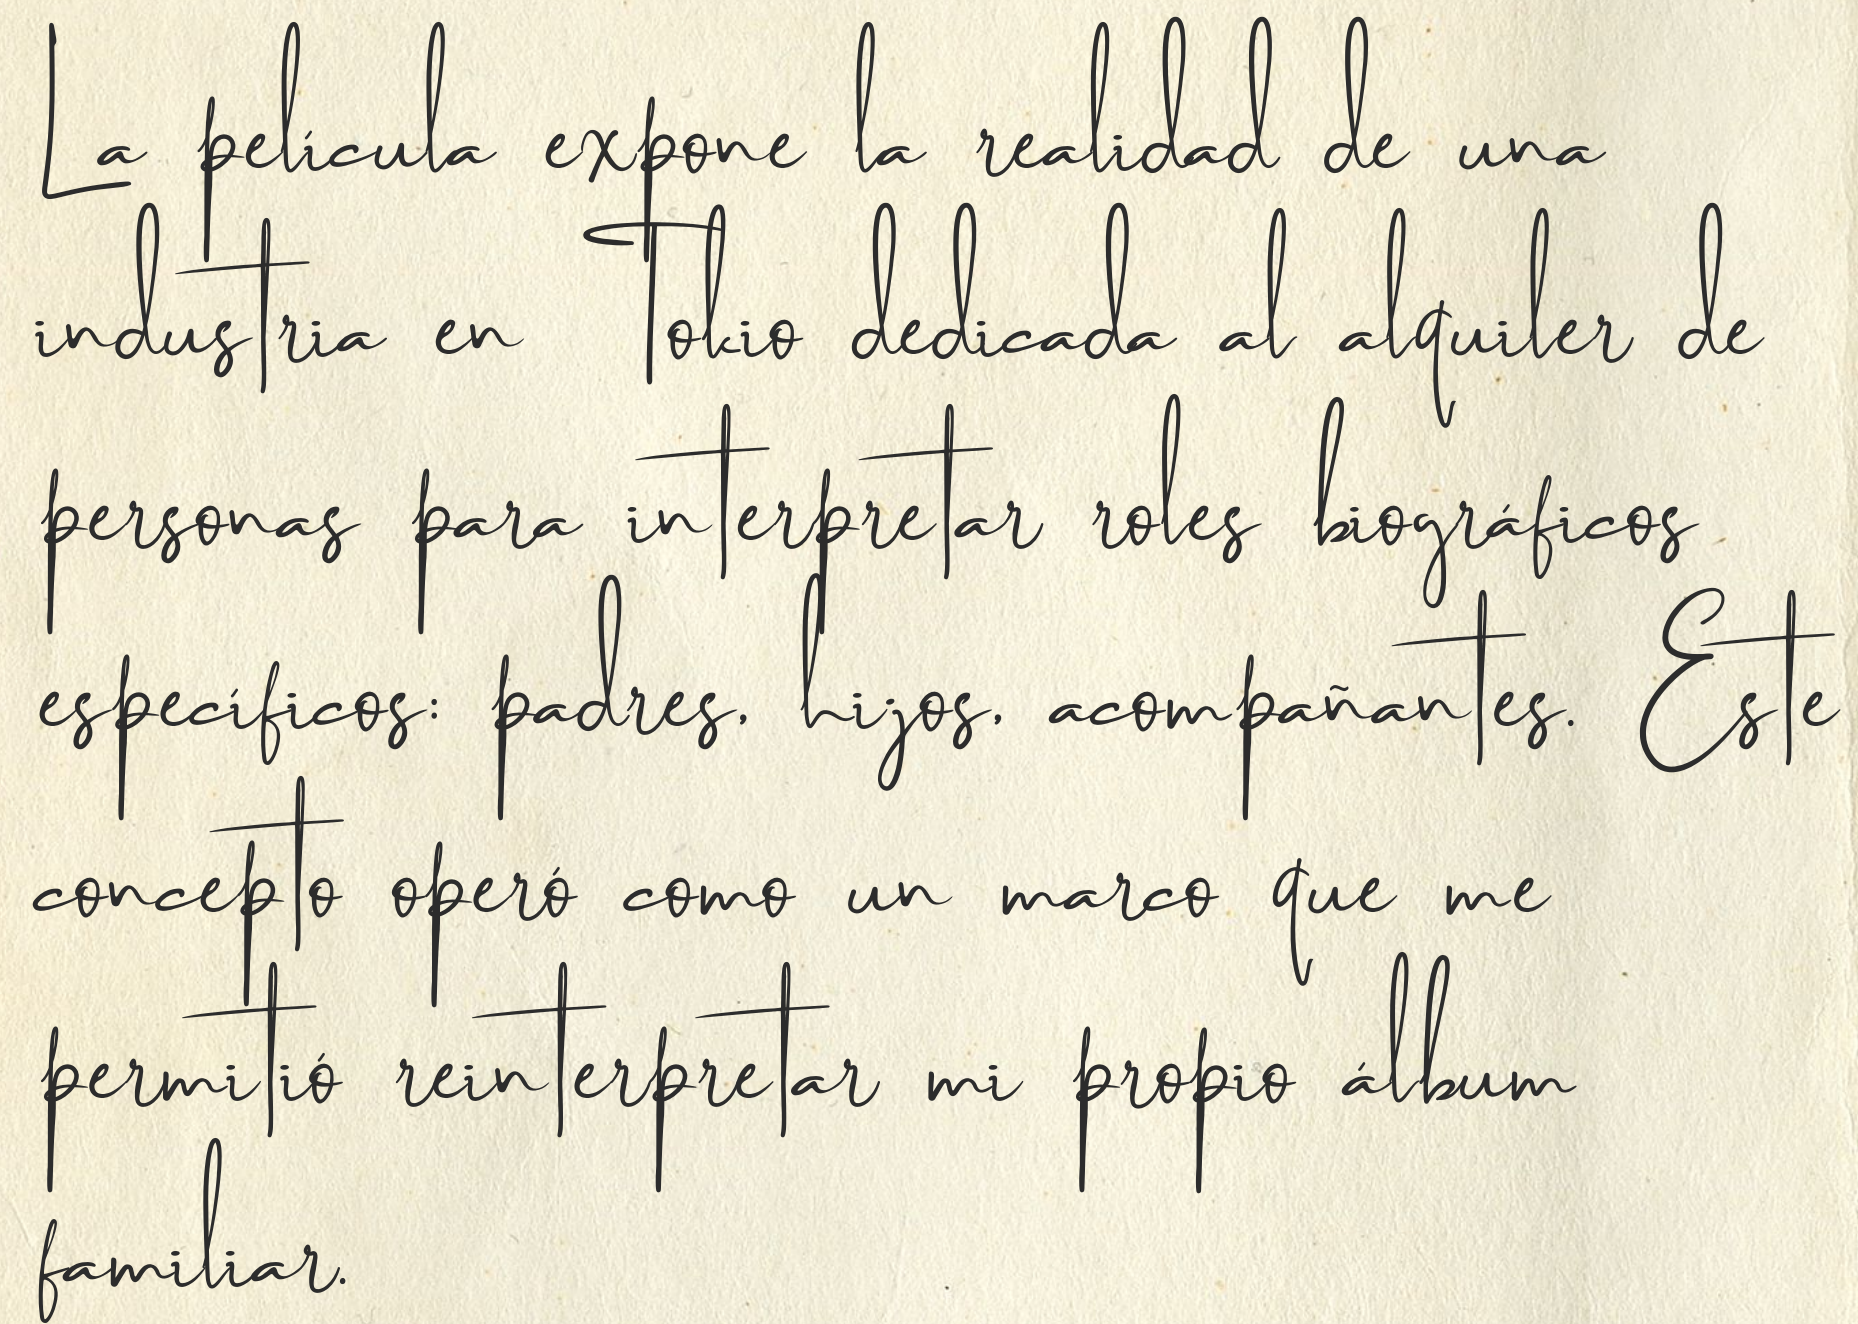 La película expone la realidad de una
industria en Tokio dedicada al alquiler de
personas para interpretar roles biográficos
específicos: padres, hijos, acompañantes. Este
concepto operó como un marco que me
permitió reinterpretar mi propio álbum
familiar.